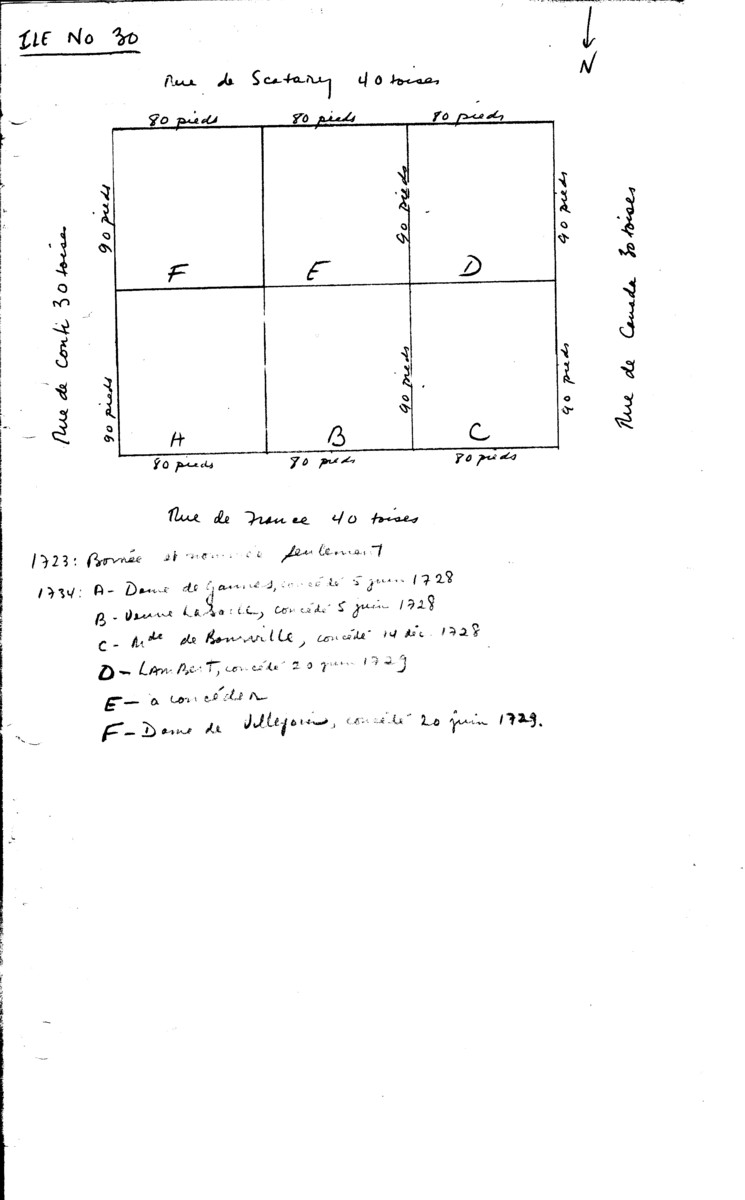 ILE No 30
N
Rue de Scatary 40 toises
80 pieds 80 pieds 80 pieds
Rue de Conti 30 toises
90 pieds 90 pieds 90 pieds
Rue de Canada 30 toises
F E D
90 pieds 90 pieds 90 pieds
A B C
80 pieds 80 pieds 80 pieds
Rue de France 40 toises
1723: Bornée et seulement
1734: A- Dame de Gannes, concédé 5 juin 1728
B- Veuve , concédé 5 juin 1728
C- de , concédé 14 déc. 1728
D- LAMBERT, concédé 20 juin 1729
E- à concéder
F- Dame de Villejoin, concédé 20 juin 1729.